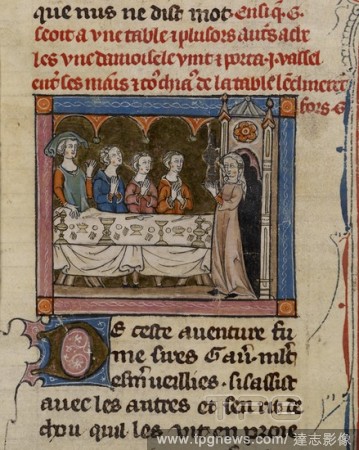 que nus ne dist mot. Ensi q̃. G.
seoit a vne table ⁊ plusors autres a de
les vne damoisele vint ⁊ porta .i. vassel
entre ses mains ⁊ de la table
fors G
e ceste auenture fu
me sires Gau. mlt
esmerueillies. si sassist
auec les autres et
chou quil les vit en proie
www.tpgnews.com | 達志影像